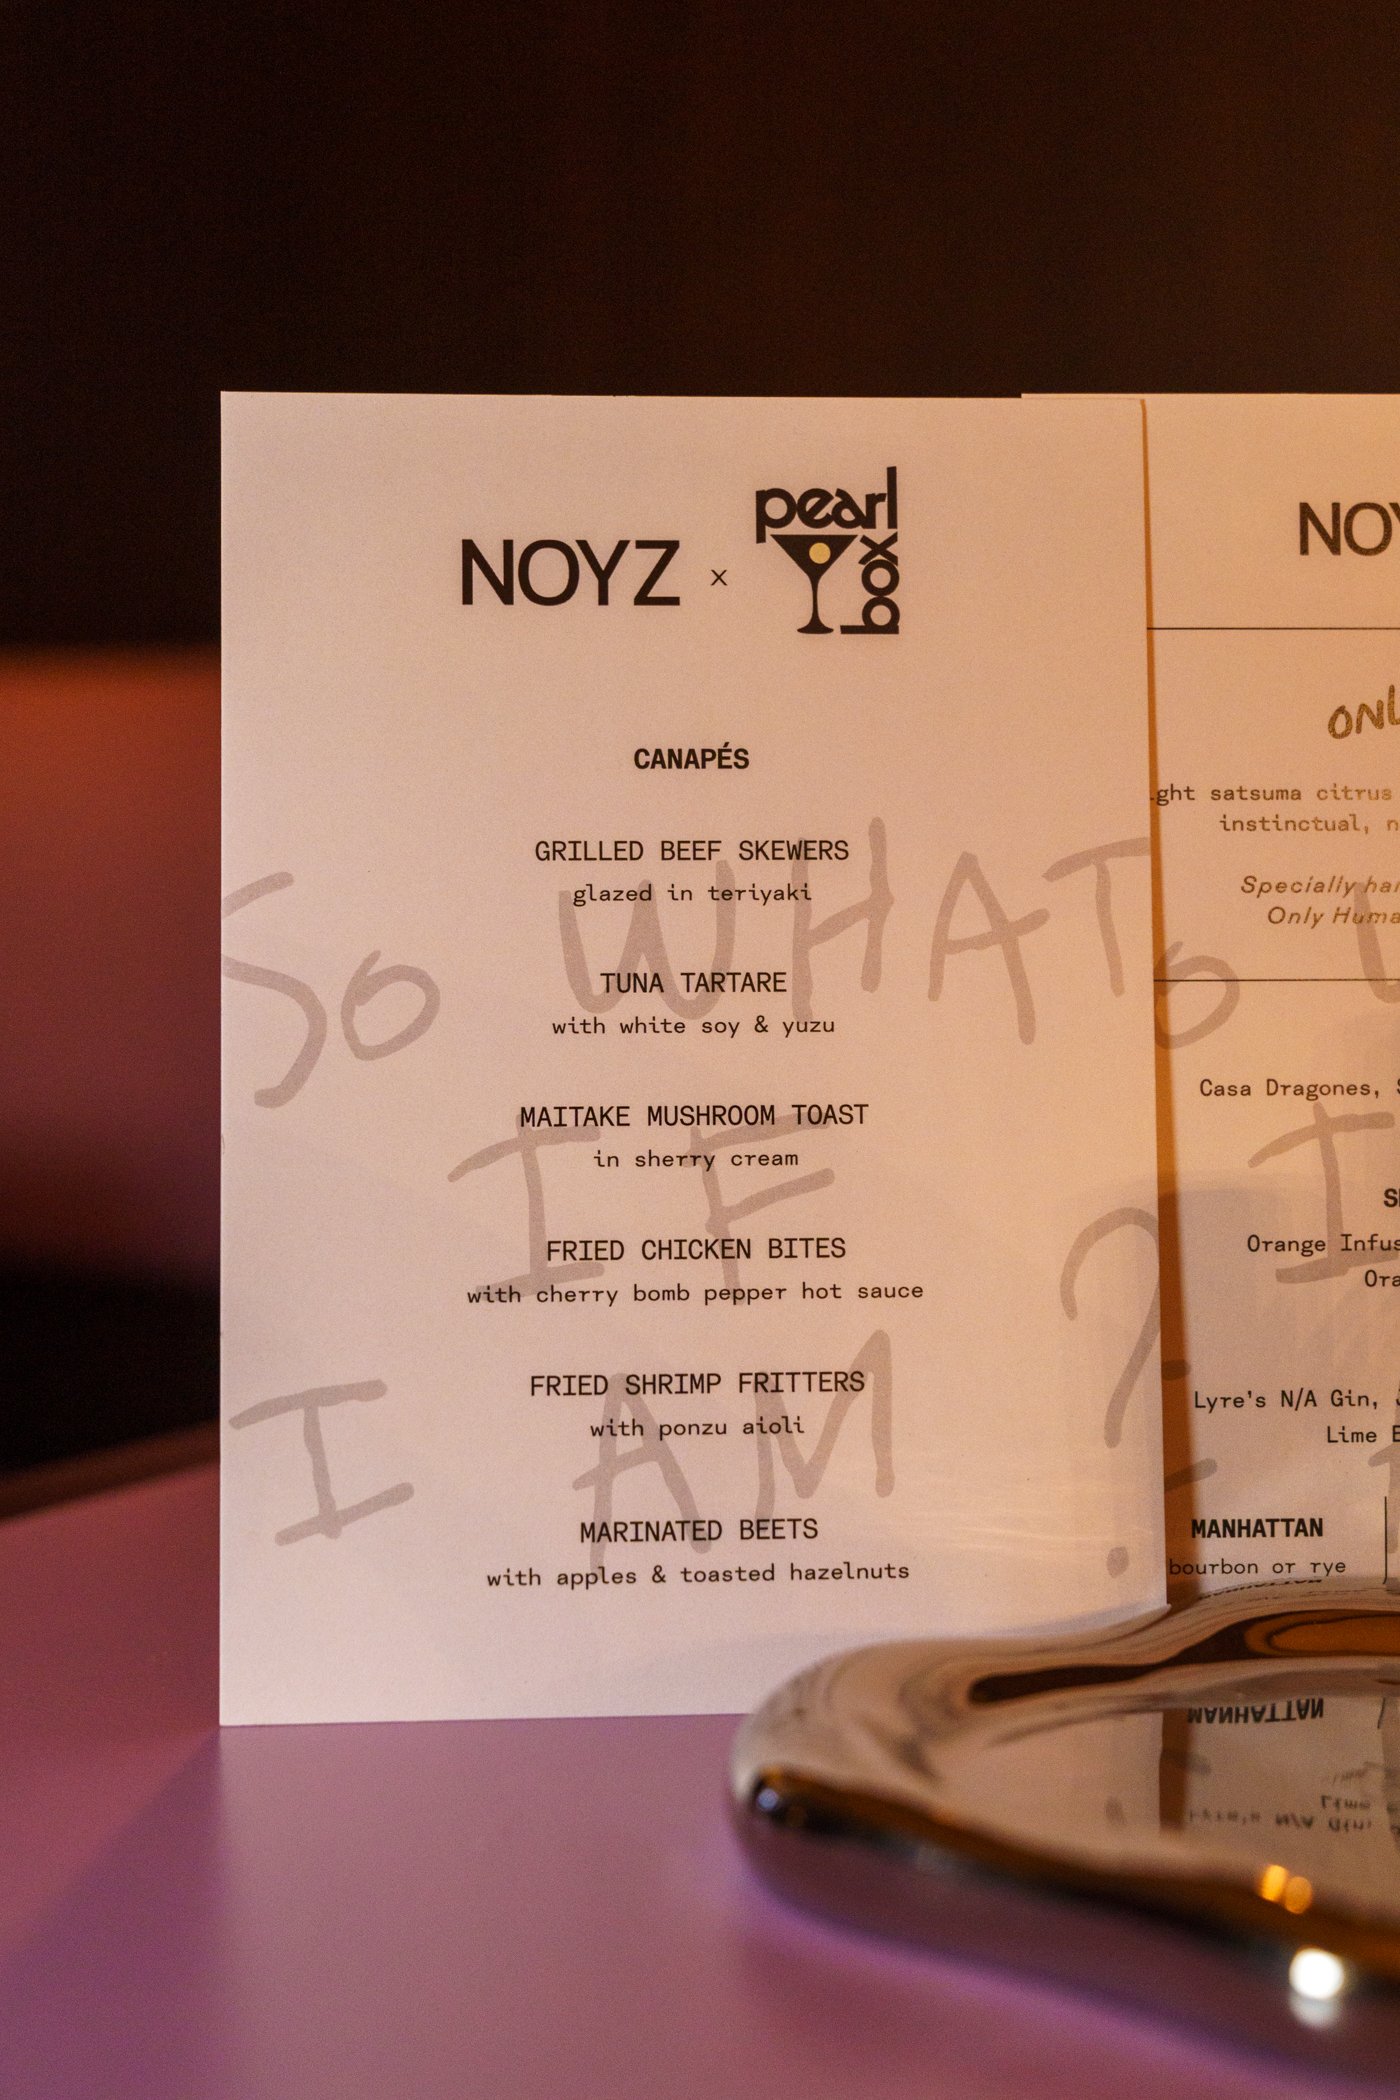 NOYZ x pearl box
CANAPÉS
GRILLED BEEF SKEWERS
glazed in teriyaki
TUNA TARTARE
with white soy & yuzu
MAITAKE MUSHROOM TOAST
in sherry cream
FRIED CHICKEN BITES
with cherry bomb pepper hot sauce
FRIED SHRIMP FRITTERS
with ponzu aioli
MARINATED BEETS
with apples & toasted hazelnuts
SO WHAT
IF
I AM ?
satsuma citrus
instinctual,
Specially
Only
Casa Dragones,
Orange
Lyre's N/A Gin,
Lime
MANHATTAN
bourbon or rye